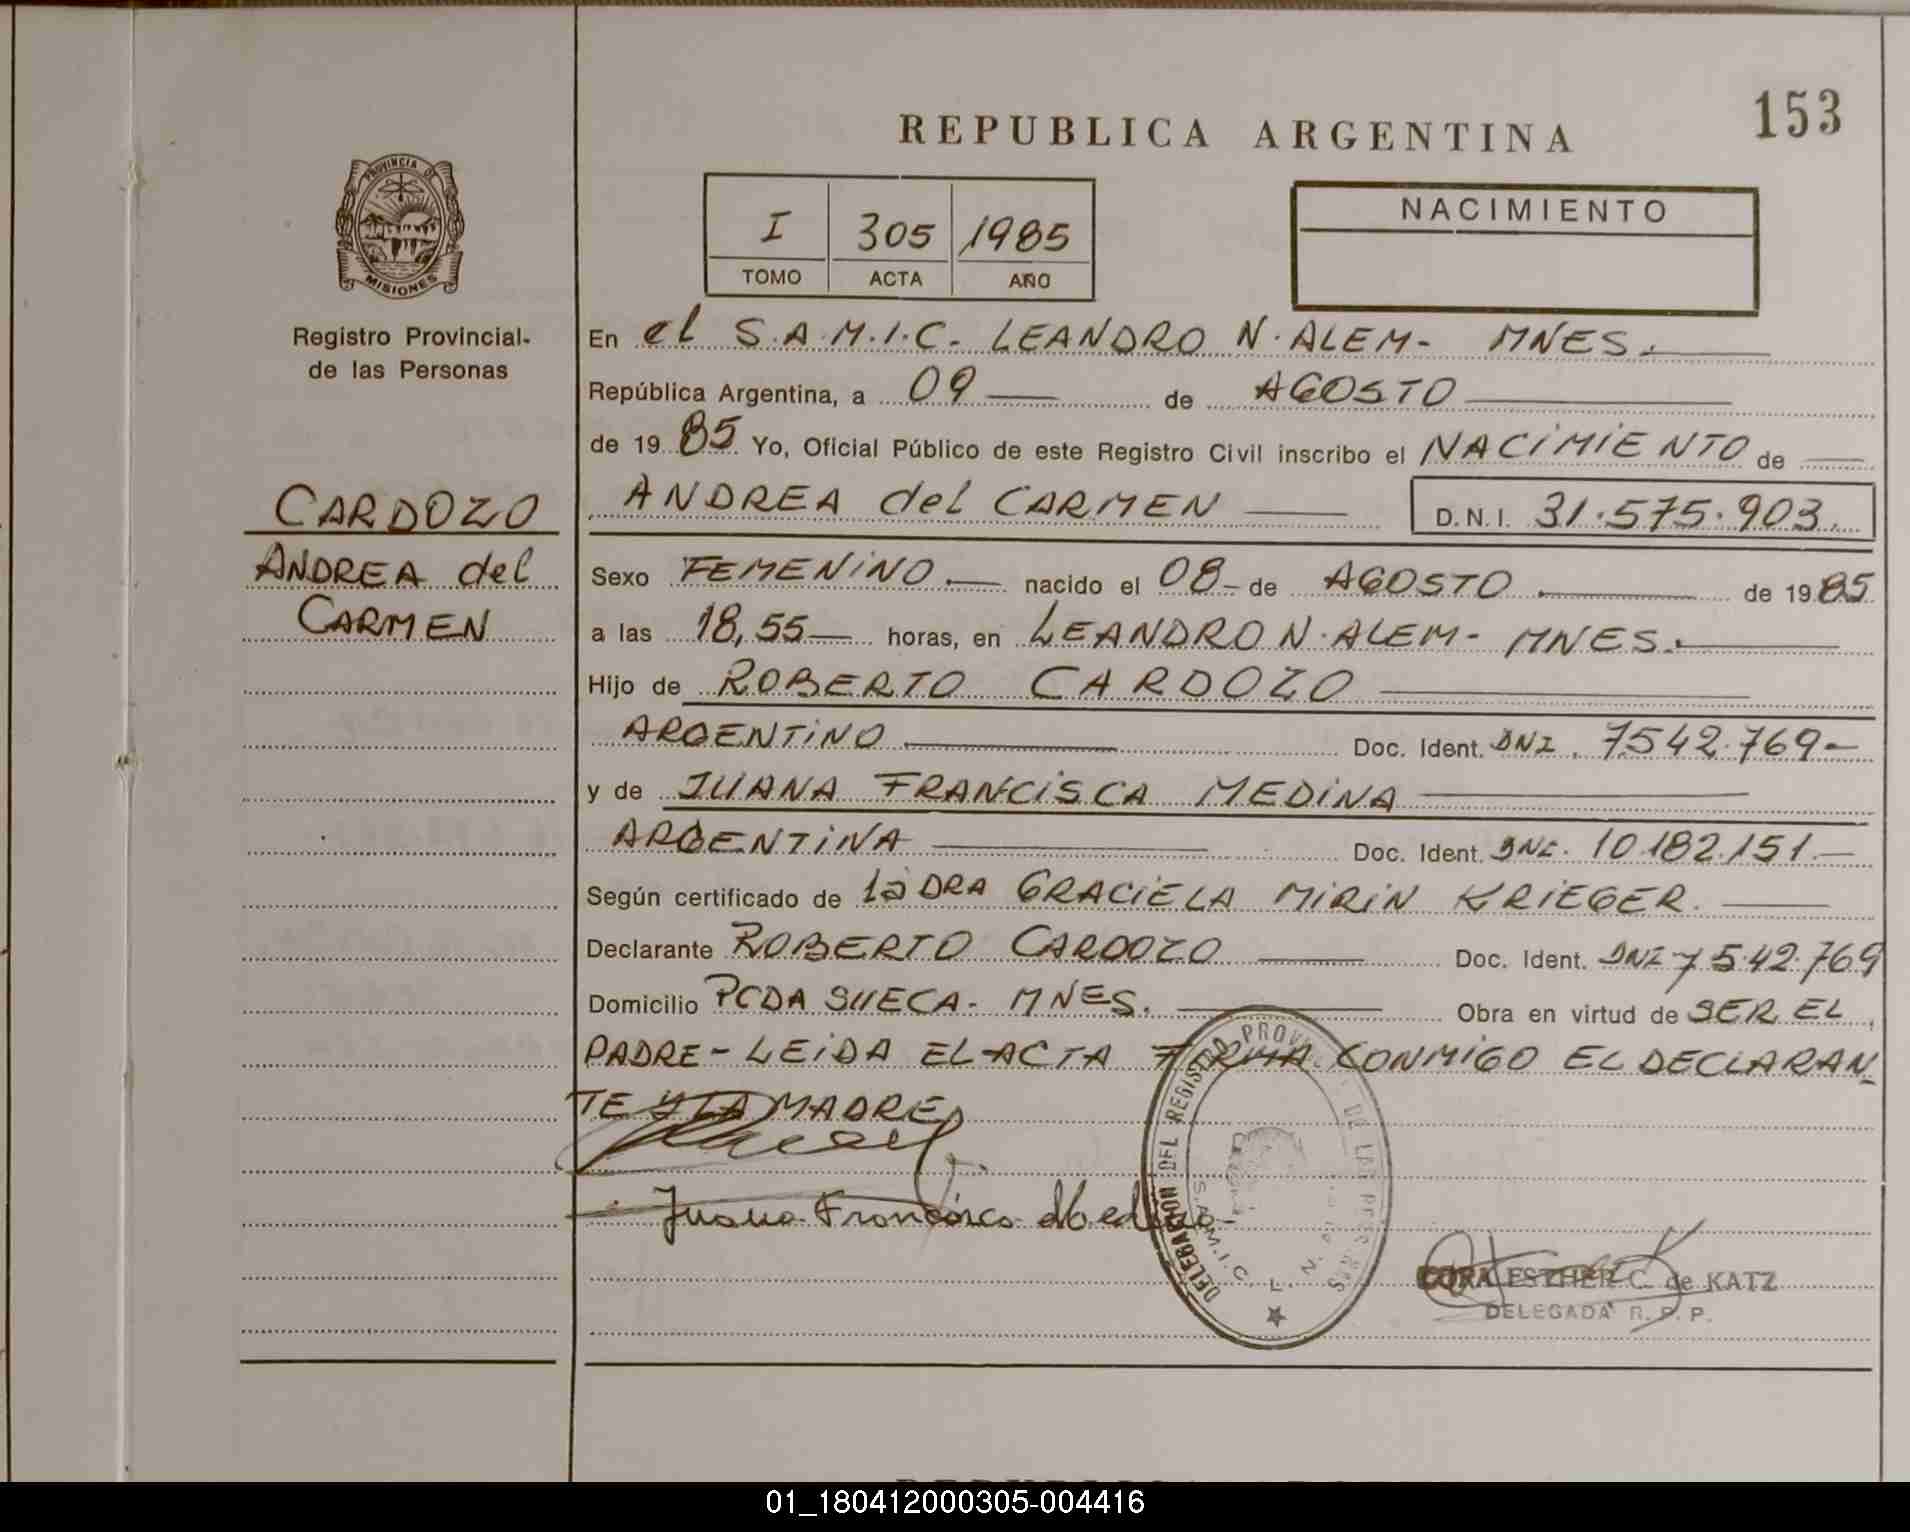 153
REPUBLICA ARGENTINA
PROVINCIA DE
MISIONES
Registro Provincial.
de las Personas
I 305 1985
TOMO ACTA AÑO
NACIMIENTO
CARDOZO
ANDREA del
CARMEN
En el S.A.M.I.C. LEANDRO N. ALEM- MNES.
República Argentina, a 09 de AGOSTO
de 19 85 Yo, Oficial Público de este Registro Civil inscribo el NACIMIENTO de
ANDREA del CARMEN D.N.I. 31.575.903.
Sexo FEMENINO. nacido el 08 de AGOSTO de 19 85
a las 18,55 horas, en LEANDRO N. ALEM- MNES.
Hijo de ROBERTO CARDOZO
ARGENTINO Doc. Ident. DNI. 7.542.769-
y de JUANA FRANCISCA MEDINA
ARGENTINA Doc. Ident. DNI. 10.182.151.
Según certificado de la DRA GRACIELA MIRIN KRIEGER.
Declarante ROBERTO CARDOZO Doc. Ident. DNI 7.542.769
Domicilio PCDA SUECA- MNES. Obra en virtud de SER EL
PADRE- LEIDA EL ACTA FIRMA CONMIGO EL DECLARAN
TE Y LA MADRE
Juana Francisca Medina
DELEGACION DEL REGISTRO PROV DE LAS PERS
S.A.M.I.C. L. N.
CORA ESTHER C. de KATZ
DELEGADA R. P. P.
01_180412000305-004416